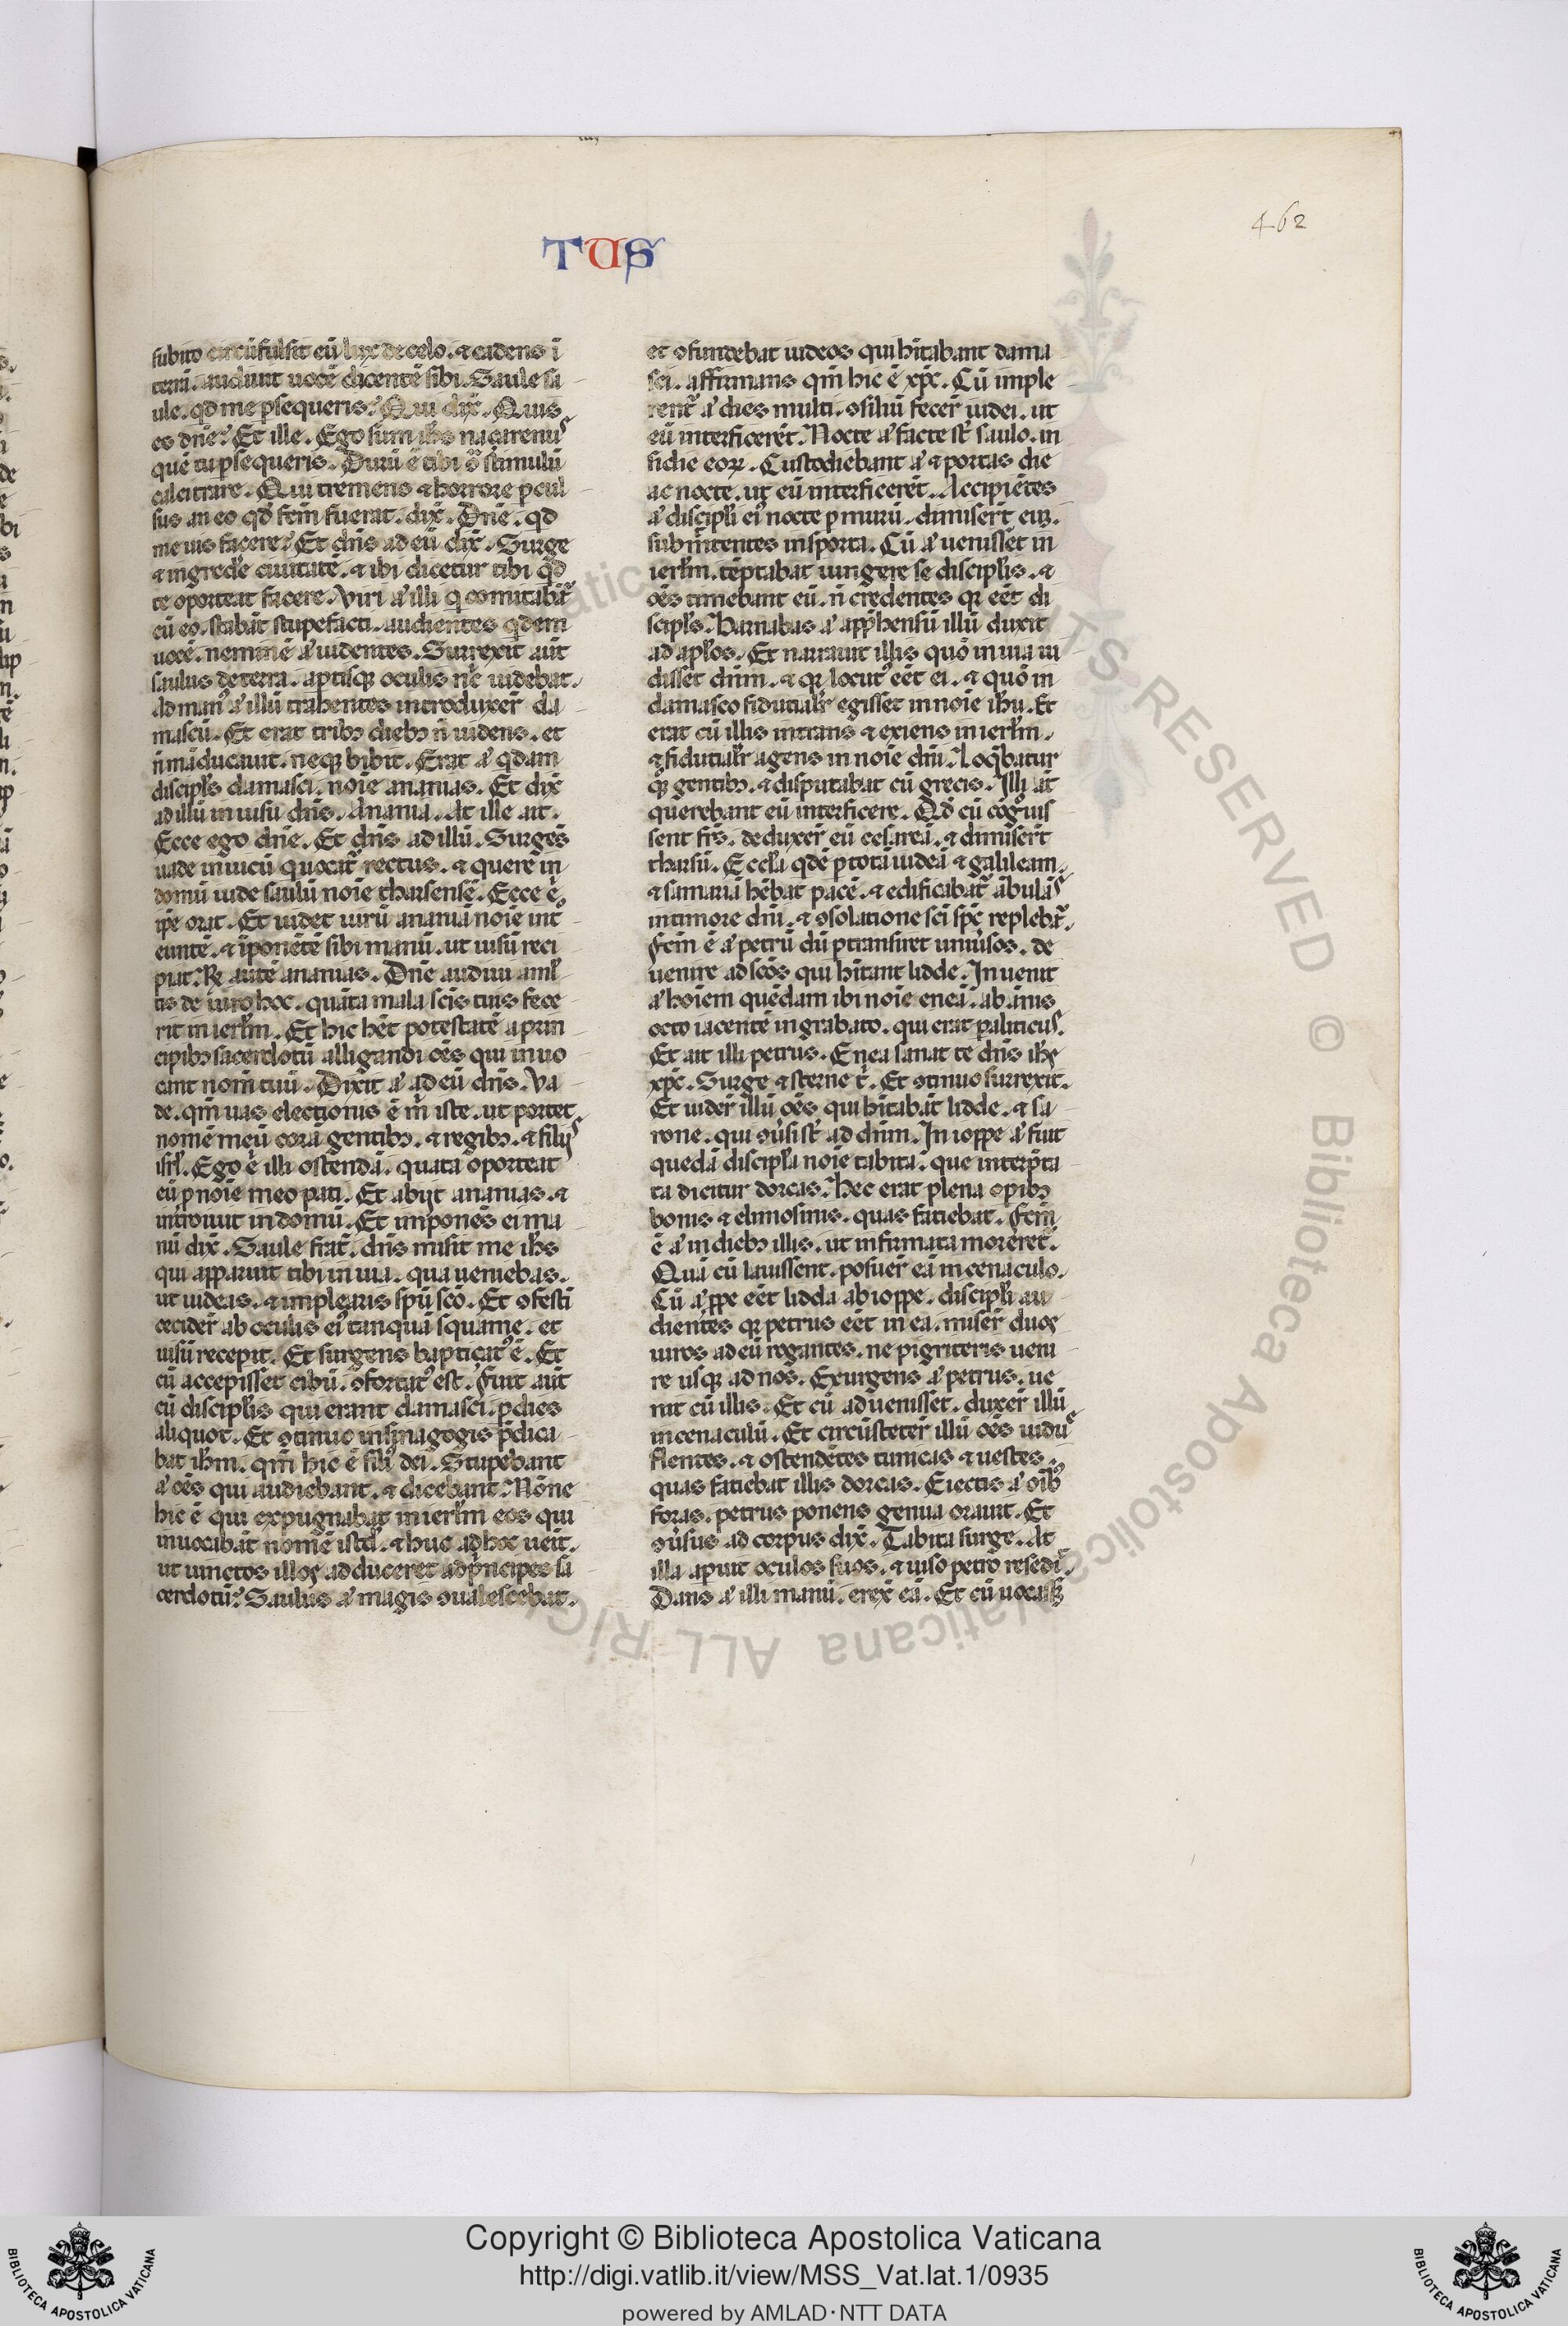 462
TUS
subito circūfulsit eū lux de celo. ⁊ cadens ī
terrā. audiuit uocē dicentē sibi. Saule sa
ule. qd me ꝑsequeris? Qui dix̄. Quis
es dn̄e? Et ille. Ego sum ih̄s naçarenus
quē tu ꝑsequeris. Durū ē tibi ꝯ̄ stimulū
calcitrare. Qui tremens ⁊ horrore ꝑcul
sus an eo qd fcm̄ fuerat. dix̄. Dn̄e. qd
me uis facere? Et dn̄s ad eū dix̄. Surge
⁊ ingrede ciuitatē. ⁊ ibi dicetur tibi qd
te oporteat facere. Viri a' illi q̇ comitabāt̄
cū eo. stabāt stupefacti. audientes q̇dem
uocē. neminē a' uidentes. Surrexit aūt
saulus de terra. aptisqꝫ oculis nc̄ uidebat.
Ad man' a' illū trahentes introduxer̄ da
mascū. Et erat tribꝫ diebꝫ n̄ uidens. et
n̄ māducauit. neqꝫ bibit. Erat a' q̇dam
discipl̄s damasci. noīe ananias. Et dix̄
ad illū in uisu dn̄s. Anania. At ille ait.
Ecce ego dn̄e. Et dn̄s ad illū. Surgēs
uade in uicū q uocat̄ rectus. ⁊ quere in
domū iude saulū noīe tharsensē. Ecce ē
ip̄e orat. Et uidet uirū ananiā noīe int
euntē. ⁊ īponētē sibi manū. ut uisū reci
piat. R̄ autē ananias. Dn̄e audiui aml̄
tis de uiro hoc. quāta mala scīs tuis fece
rit in ierl̄m. Et hic h̄et potestatē a prin
cipibꝫ sacerdotū alligandi oēs qui inuo
cant nom̄ tuū. Dixit a' ad eū dn̄s. Va
de. qm̄ uas electionis ē m̄ iste. ut portet
nomē meū corā gentibꝫ. ⁊ regibꝫ. ⁊ filijs
isrl̄. Ego ē illi ostendā. quāta oporteat
eū ꝑ noīe meo pati. Et abijt ananias. ⁊
introiuit in domū. Et imponēs ei ma
nū dix̄. Saule frat̄. dn̄s misit me ih̄s
qui apparuit tibi in uia. qua ueniebas.
ut uideas. ⁊ implearis spū scō. Et ꝯfesti
cecider̄ ab oculis ei' tanquā squame. et
uisū recepit. Et surgens baptiçat' ē. Et
cū accepisset cibū. ꝯfortat' est. Fuit aūt
cū discipl̄is qui erant damasci. ꝑ dies
aliquot. Et ꝯtinuo in sinagogis p̄dica
bat ih̄m. qm̄ hic ē fili' dei. Stupebant
a' oēs qui audiebant. ⁊ dicebant. Nōne
hic ē qui expugnabat in ierl̄m eos qui
inuocabāt nomē istd̄. ⁊ huc ad hoc ueīt.
ut uinctos illoꝫ adduceret ad p̄ncipes sa
cerdotū? Saulus a' magis ꝯualescebat.
et ꝯfundebat iudeos qui hītabant dama
sci. affirmans qm̄ hic ē xp̄c. Cū imple
rent̄ a' dies multi. ꝯsiliū fecer̄ iudei. ut
eū interficerēt. Nocte a' facte st̄ saulo. in
sidie eoꝝ. Custodiebant a' ⁊ portas die
ac nocte. ut eū interficerēt. Accipiētes
a' discipl̄i ei' nocte ꝑ murū. dimiser̄t euꝫ.
submitentes in sporta. Cū a' uenisset in
ierl̄m. tēptabat iungere se discipl̄is. ⁊
oēs timebant eū. n̄ credentes qꝫ eēt di
scipl̄s. Barnabas a' app̄hensū illū duxit
ad apl̄os. Et narrauit illis quō in uia ui
disset dn̄m. ⁊ qꝫ locut' eēt ei. ⁊ quō in
damasco fiducialr̄ egisset in noīe ih̄u. Et
erat cū illis intrans ⁊ exiens in ierl̄m.
⁊ fiducialr̄ agens in noīe dn̄i. Loq̇batur
qꝫ gentibꝫ. ⁊ disputabat cū grecis. Illi aūt
querebant eū interficere. Qd cū cog̊uis
sent frs̄. deduxer̄ eū cesareā. ⁊ dimiser̄t
tharsū. Eccl̄a q̇dē ꝑ totā iudeā ⁊ galileam.
⁊ samariā h̄ebat pacē. ⁊ edificabat̄ ābulās
in timore dn̄i. ⁊ ꝯsolatione sc̄i sp̄c replebat̄.
Fcm̄ ē a' petrū dū ꝑtransiret uniu'sos. de
uenire ad scōs qui hītant lidde. Inuenit
a' hoīem quēdam ibi noīe eneā. ab ānis
octo iacentē in grabato. qui erat paliticus.
Et ait illi petrus. Enea sanat te dn̄s ih̄c
xp̄c. Surge ⁊ sterne t'. Et ꝯtinuo surrexit.
Et uider̄ illū oēs qui hītabāt lidde. ⁊ sa
rone. qui ꝯu'si st̄ ad dn̄m. In ioppe a' fuit
quedā discipl̄a noīe tabita. que interp̄ta
ta dicitur dorcas. Hec erat plena opibꝫ
bonis ⁊ elimosinis. quas fatiebat. Fcm̄
ē a' in diebꝫ illis. ut infirmata moreret̄.
Quā cū lauissent. posuer̄ eā in cenaculo.
Cū a' ꝓpe eēt lidda ab ioppe. discipl̄i au
dientes qꝫ petrus eēt in ea. miser̄ duos
uiros ad eū rogantes. ne pigriteris ueni
re usqꝫ ad nos. Exurgens a' petrus. ue
nit cū illis. Et cū aduenisset. duxer̄ illū
in cenaculū. Et circūsteter̄ illū oēs uidue
flentes. ⁊ ostendētes tunicas ⁊ uestes.
quas fatiebat illis dorcas. Eiectis a' oīb'
foras. petrus ponens genua orauit. Et
ꝯu'sus ad corpus dix̄. Tabita surge. At
illa apuit oculos suos. ⁊ uiso petro resedi.
Dans a' illi manū. erex̄ eā. Et cū uocasꝫ
Copyright © Biblioteca Apostolica Vaticana
http://digi.vatlib.it/view/MSS_Vat.lat.1/0935
powered by AMLAD·NTT DATA
BIBLIOTECA APOSTOLICA VATICANA
BIBLIOTECA APOSTOLICA VATICANA